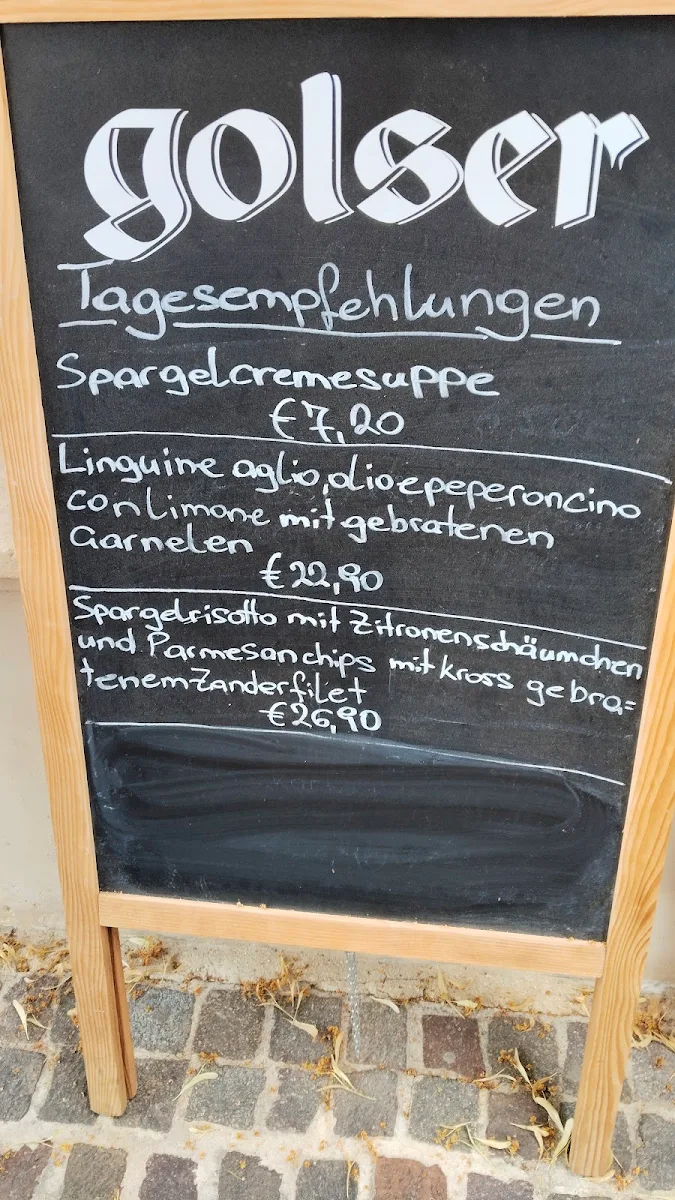 golser
Tagesempfehlungen
Spargelcremesuppe
€7,20
Linguine aglio, olio e peperoncino
con limone mit gebratenen
Garnelen
€22,90
Spargelrisotto mit Zitronenschäumchen
und Parmesanchips mit kross gebra=
tenem Zanderfilet
€26,90